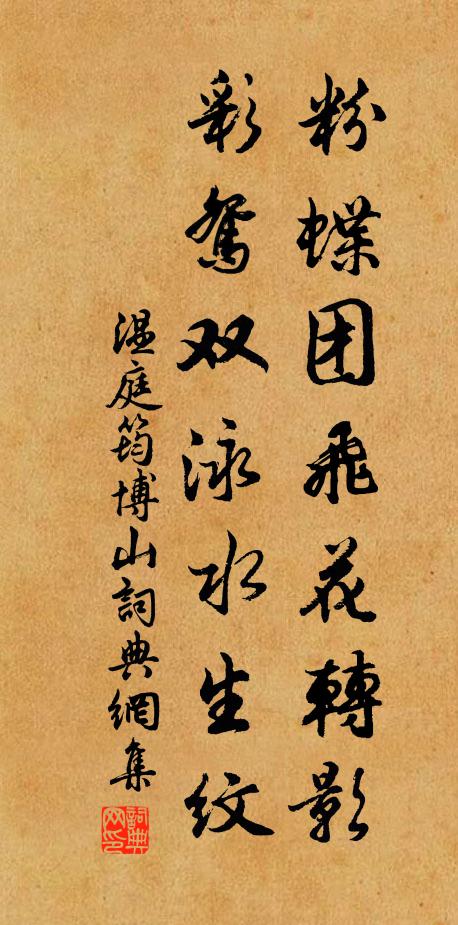 粉蝶团飛花轉影
彩鸳双泳水生纹
温庭筠博山詞典網集
詞典网印